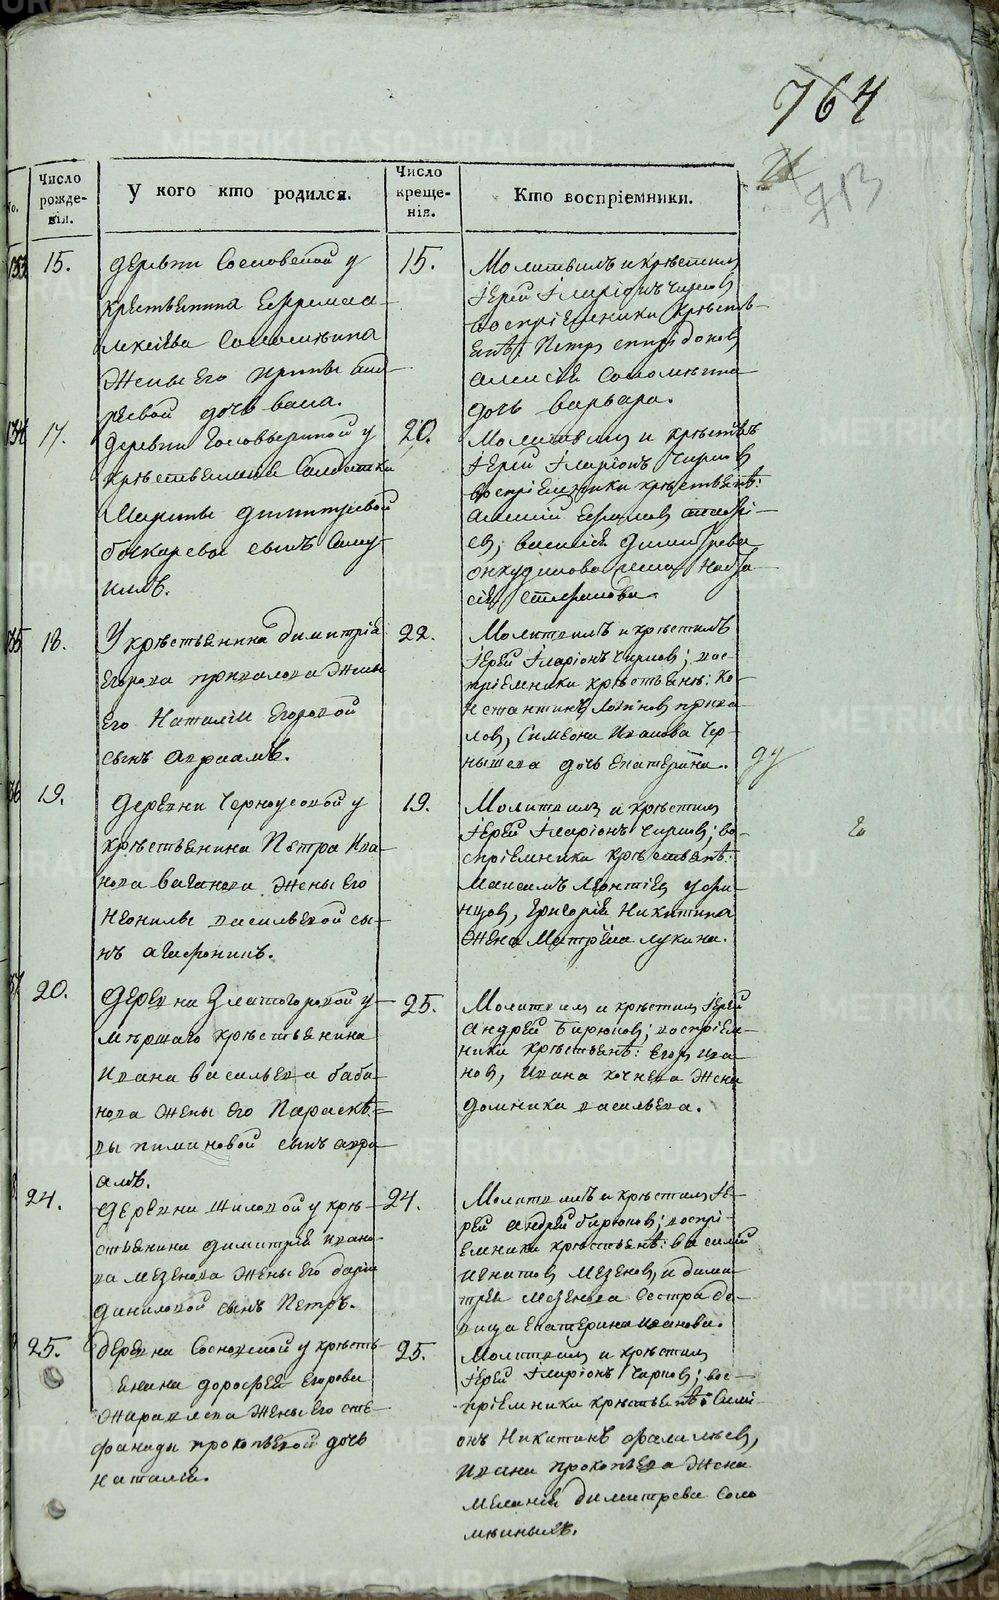 764
713
No.
Число рожде-нія.
У кого кто родился.
Число креще-нія.
Кто воспріемники.
133
15.
деревни Сосновской у
крестьянина Ефрема а-
лексіева Соломеина
жены его Ирины анд-
реевой дочь
15.
Молитвилъ и крестилъ
іерей Іларіонъ Чирковъ
воспріемники крестья-
енѣ: Петръ спиридоновъ
алексія Соломеина
дочь варвара.
134
17.
деревни Головыриной у
крестьянина Солдатки
Марины димитріевой
сынъ Саму-
илъ.
20.
Молитвилъ и крестилъ
іерей Іларіонъ Чирковъ
воспріемники крестьянѣ:
евъ; василія димитрева
жена Наста-
сія стефанова
135
18.
У крестьянина димитрія
Егорова привалова жены
его Наталіи Егоровой
сынъ авраамъ.
22.
Молитвилъ и крестилъ
іерей Іларіонъ Чирковъ; вос-
пріемники крестьянѣ: Ко-
нстантинъ Логиновъ прива-
ловъ, Симеона Иванова Чер-
нышева дочь Екатерина.
136
19.
деревни Черноусовой у
крестьянина Петра Ива-
нова ваганова жены его
Неонилы васильевой сы-
нъ агафоникъ.
19.
Молитвилъ и крестилъ
іерей Іларіонъ Чирковъ; во-
спріемники крестьянѣ:
Максимъ леонтіевъ уфи-
нцовъ, григорія Никитина
жена Матрена лукина.
137
20.
деревни Златогоровой у-
мершаго крестьянина
Ивана васильева баба-
нова жены его Параскѣ-
вы пимновой сынъ авра-
амъ.
25.
Молитвилъ и крестилъ іерей
андрей бирюковъ; воспріем-
ники крестьянѣ: Егоръ ива-
новъ, Ивана кочнева жена
домника васильева.
24.
деревни шиловой у кре-
стьянина димитрія ивано-
ва мезенова жены его дарьи
даниловой сынъ Петръ.
24.
Молитвилъ и крестилъ іе-
рей андрей бирюковъ; воспрі-
емники крестьянѣ: василій
игнатовъ Мезеновъ, и дими-
трія мезенова сестра дѣ-
вица екатерина иванова.
25.
деревни Сосновской у кресть-
янина дорофея егорова
жены его сте-
фаниды прокопьевой дочь
наталія.
25.
Молитвилъ и крестилъ
іерей Іларіонъ Чирковъ; вос-
пріемники крестьянѣ: Симі-
онъ Никитинъ фалалѣевъ,
ивана прокопьева жена
меланія димитрева соло
меиныхъ.
METRIKI.GASO-URAL.RU